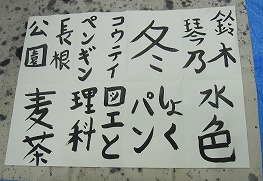 鈴木
琴乃
水色
冬
しょく
パン
コウテイ
ペンギン
図工と
理科
長根
公園
麦茶